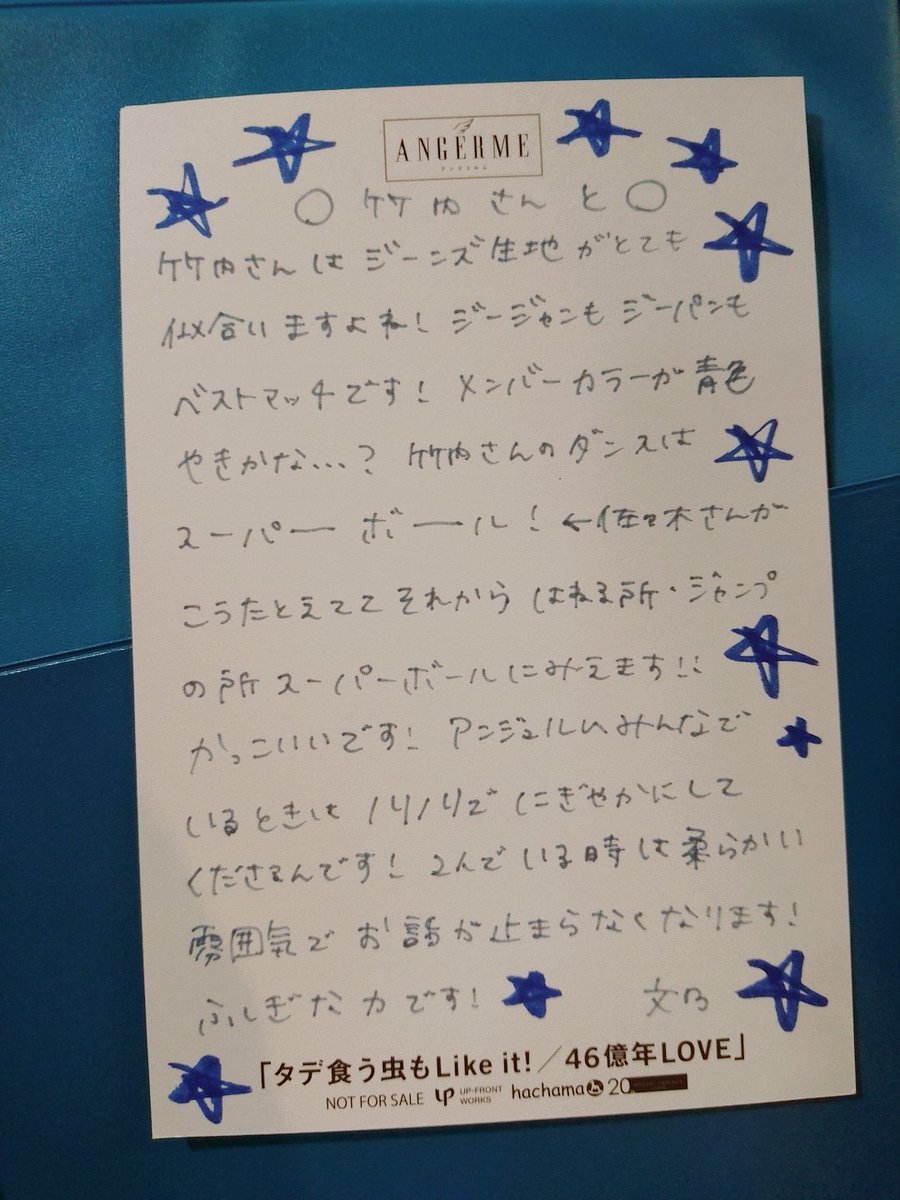 ANGERME
アンジュルム
○ 竹内さんと○
竹内さんは ジーンズ生地がとても
似合いますよね! ジージャンも ジーパンも
ベストマッチです! メンバーカラーが青色
やきかな…? 竹内さんのダンスは
スーパーボール! ←佐々木さんが
こうたとえてて それから はねる所・ジャンプ
の所 スーパーボールにみえます!!
かっこいいです! アンジュルムみんなで
いるときは ノリノリで にぎやかにして
くださるんです! 2人でいる時は柔らかい
雰囲気で お話が止まらなくなります!
ふしぎな力です! 文乃
「タデ食う虫もLike it!/46億年LOVE」
NOT FOR SALE UP-FRONT WORKS hachama 20